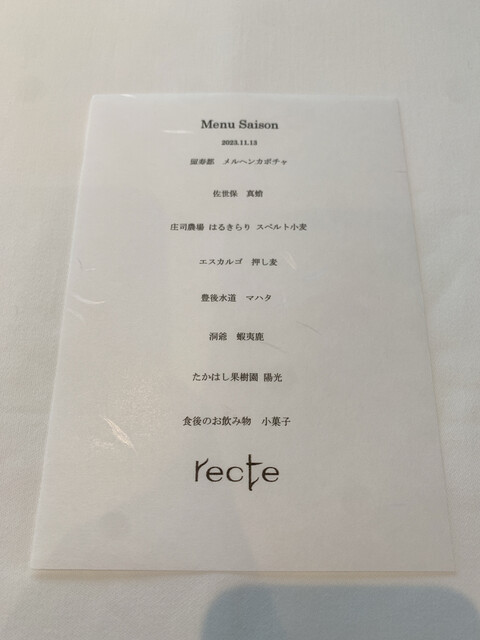 Menu Saison
2023.11.13
留寿都　メルヘンカボチャ
佐世保　真蛤
庄司農場 はるきらり スペルト小麦
エスカルゴ　押し麦
豊後水道　マハタ
洞爺　蝦夷鹿
たかはし果樹園 陽光
食後のお飲み物　小菓子
recte